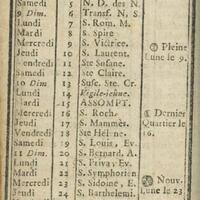 Samedi 5 N. D. des N.
9 Dim. 6 Transf. N. S.
Lundi 7 S. Rom. M.
Mardi 8 S. Spire
Mercredi 9 S. Victrice.
Jeudi 10 S. Laurent.
Vendredi 11 Ste Susane.
Samedi 12 Ste Claire.
10 Dim 13 Susc. Ste Cr.
Lundi 14 Vigile-jeûne.
Mardi 15 ASSOMPT.
Mercredi 16 S. Roch.
Jeudi 17 S. Mammès.
Vendredi 18 Ste Hélène.
Samedi 19 S. Louis, Ev.
11 Dim. 20 S. Bernard, A.
Lundi 21 S. Priva, Ev.
Mardi 22 S. Symphorien
Mercredi 23 S. Sidoine, E.
Jeudi 24 S. Barthelemi.
Pleine
Lune le 9.
Dernier
Quartier le
16.
Nouv.
Lune le 23